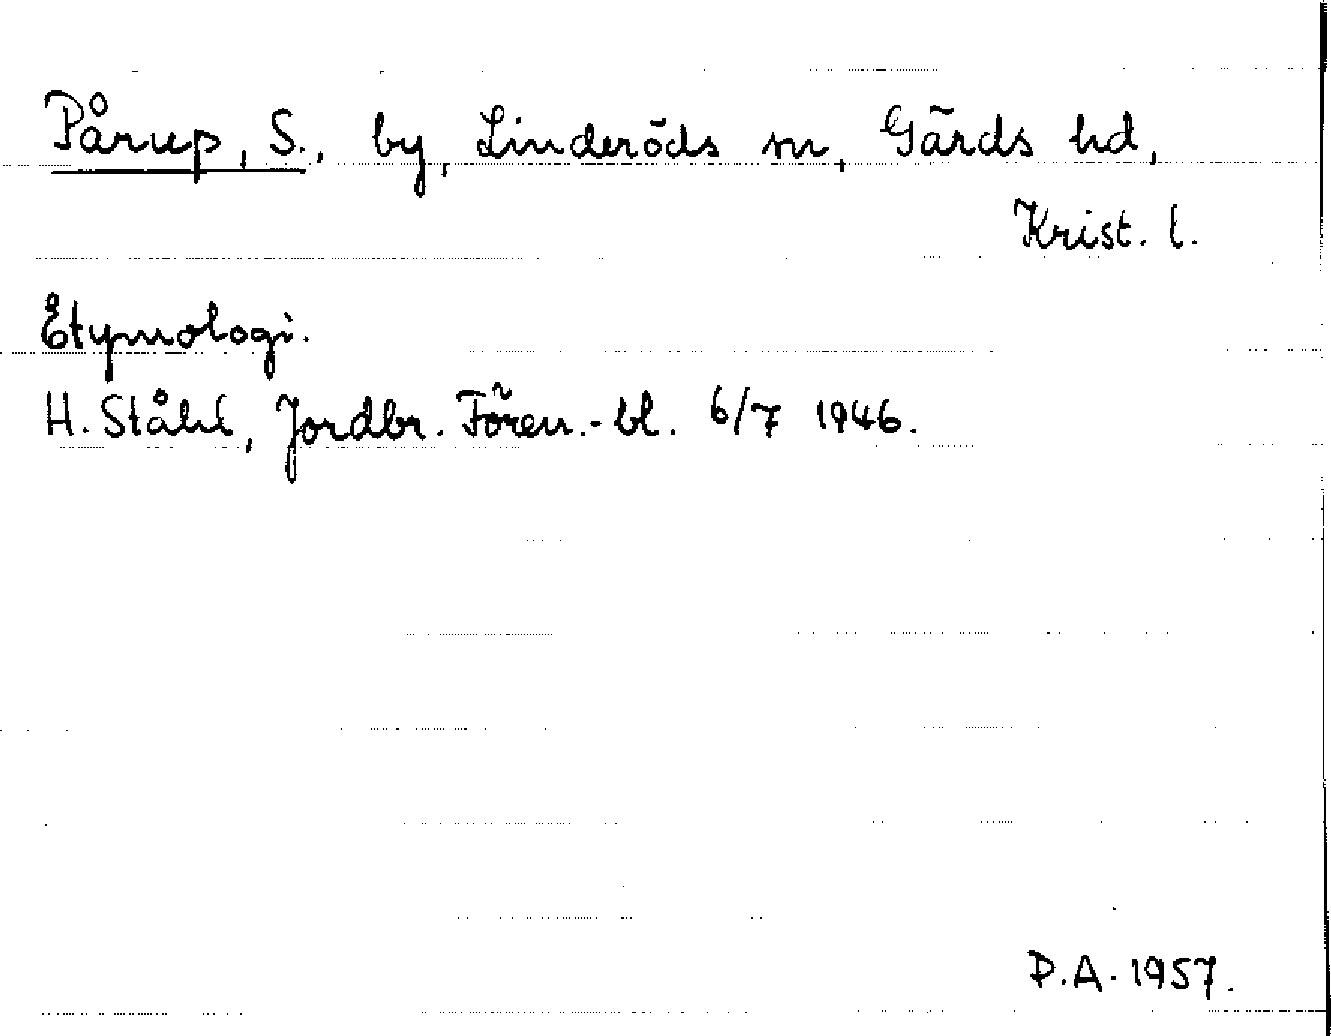 Pårup, S., by, Linderöds sn, Gärds hd,
Krist. l.
Etymologi.
H. Ståhl, Jordbr. Fören.-bl. 6/7 1946.
D.A. 1957.